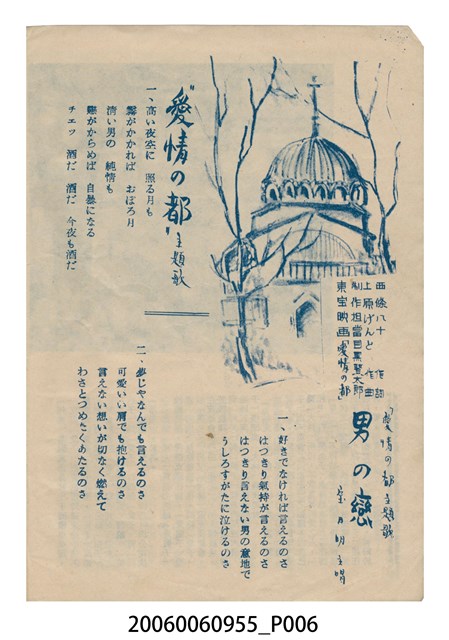 「愛情の都」主題歌
男の戀
宝田明主唱
西條八十 作詞
上原げんと 作曲
制作担當目黒賢太郎
東宝映画「愛情の都」
一、好きでなければ言えるのさ
はつきり氣持が言えるのさ
はつきり言えない男の意地で
うしろすがたに泣けるのさ
二、夢じやなんでも言えるのさ
可愛いい肩でも抱けるのさ
言えない想いが切なく燃えて
わざとつめたくあたるのさ
"愛情の都"主題歌
一、高い夜空に 照る月も
霧がかかれば おぼろ月
清い男の 純情も
戀がからめば 自暴になる
チエッ 酒だ 酒だ 今夜も酒だ
20060060955_P006